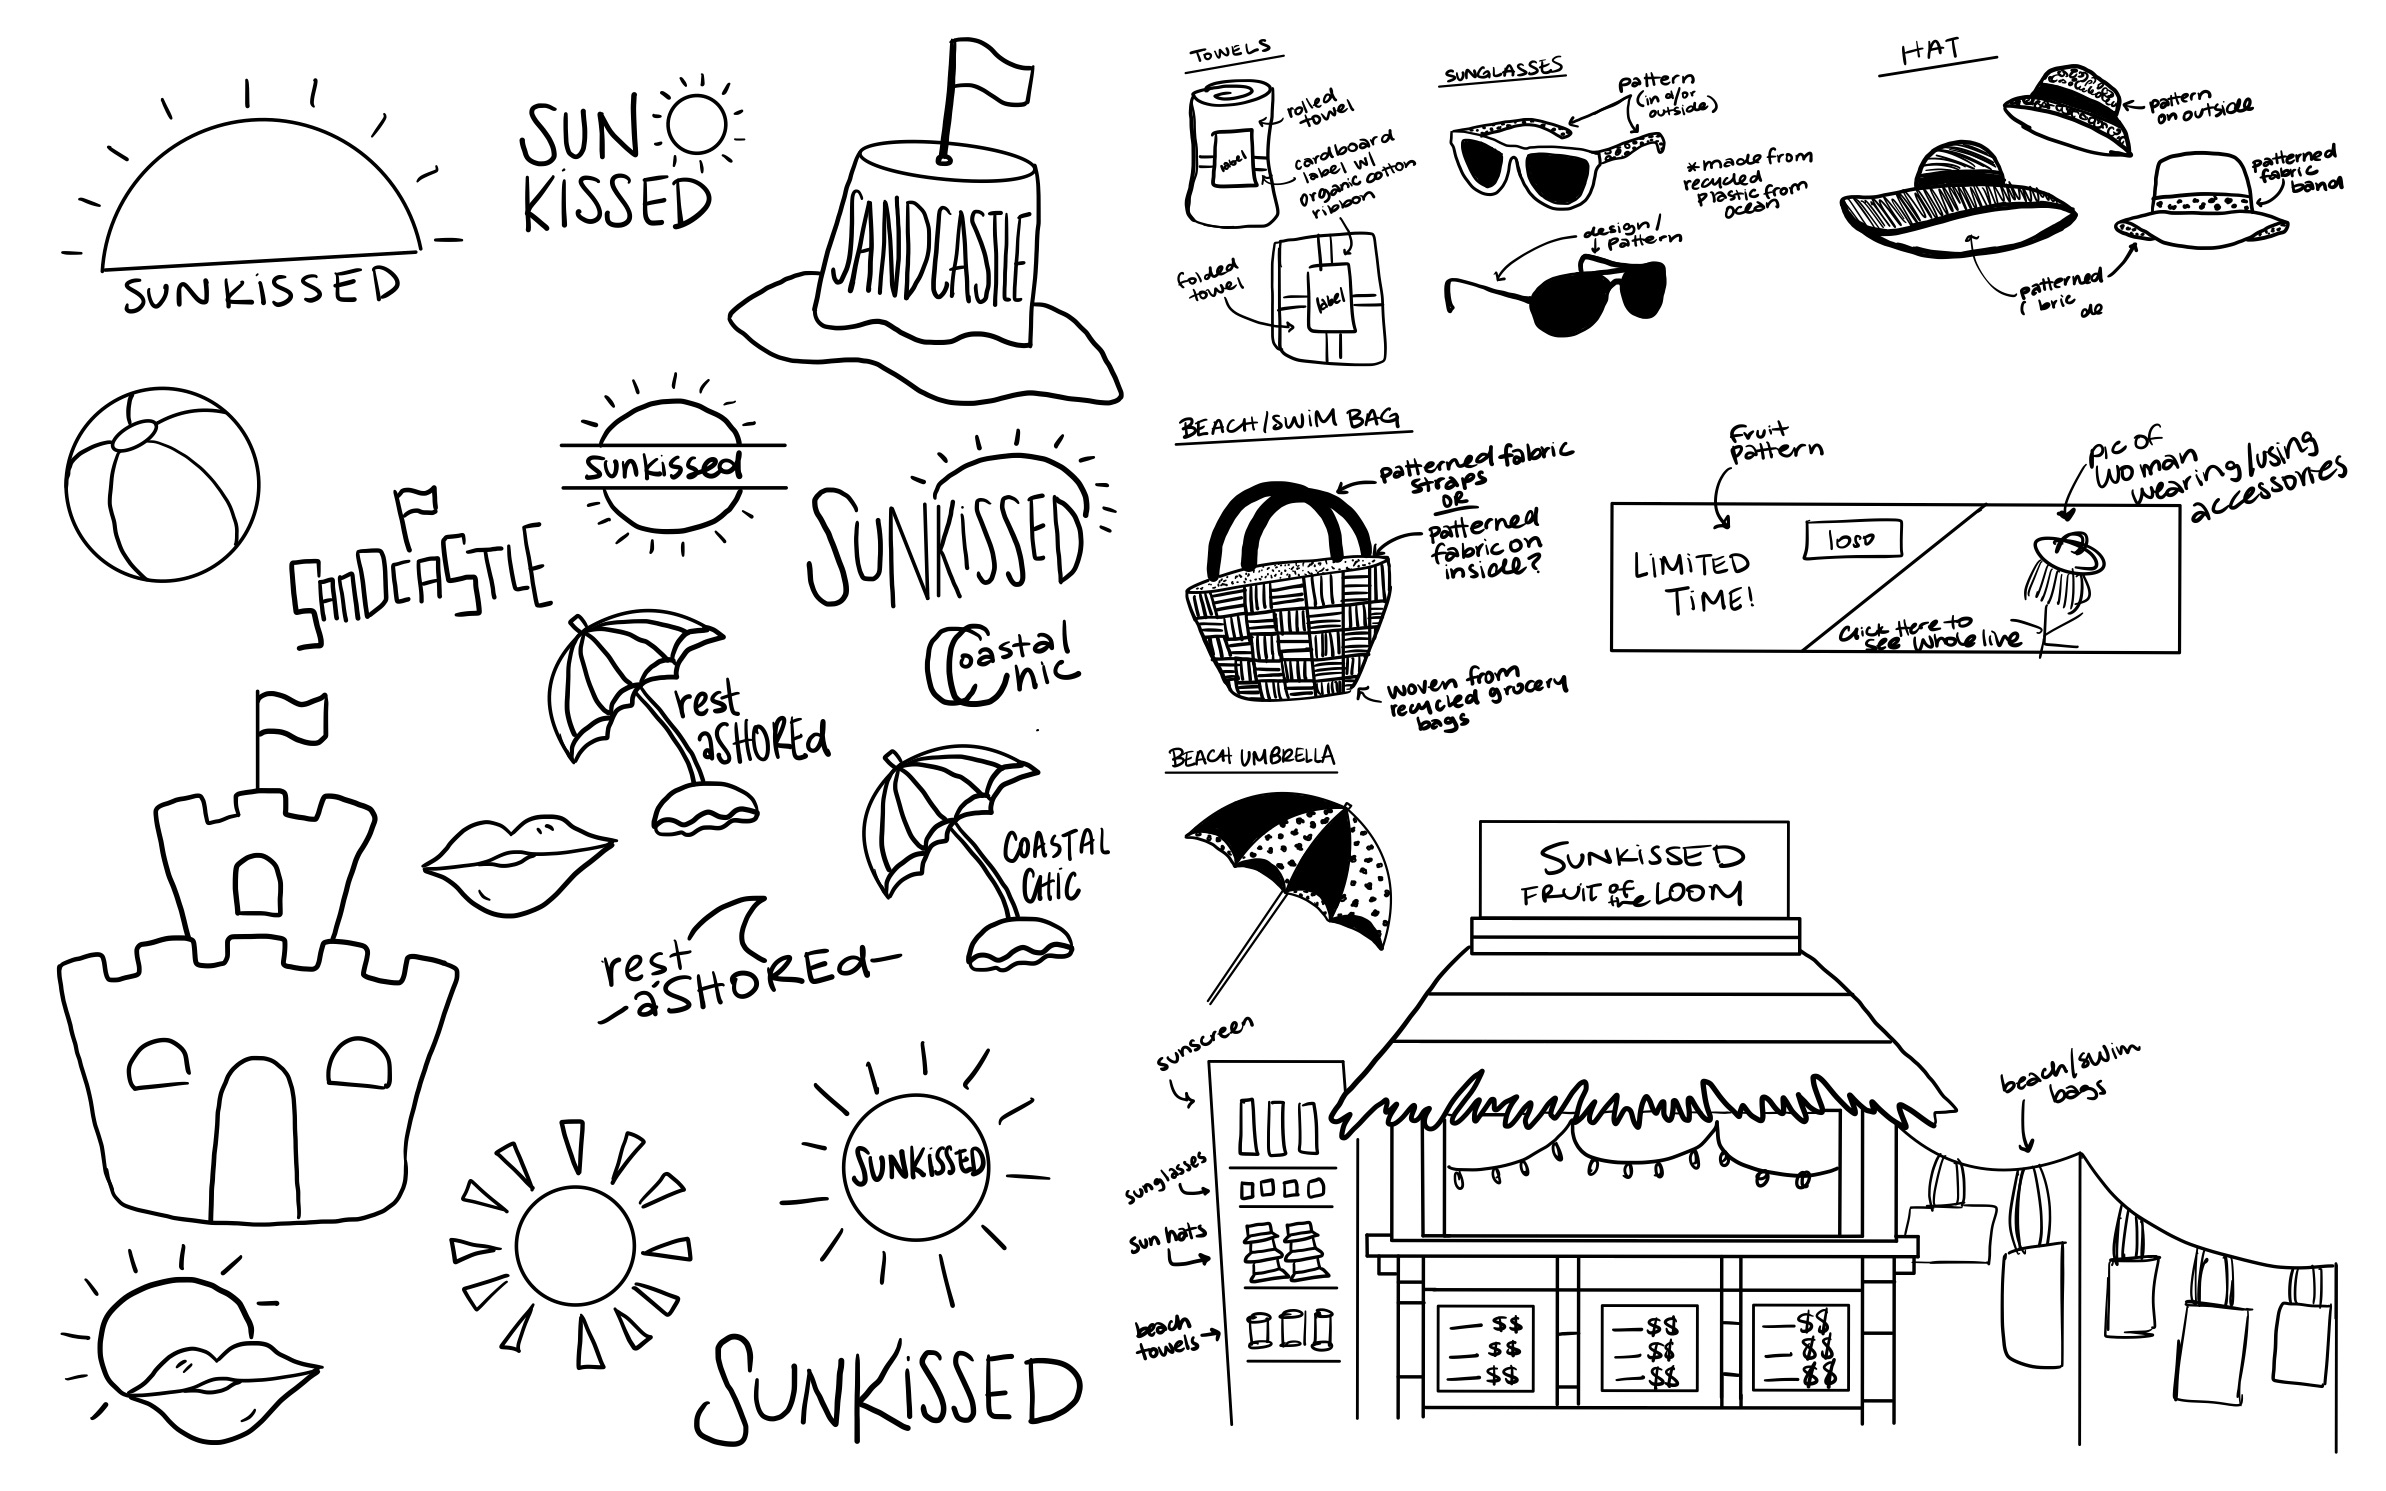 SUNKISSED
SUN
KISSED
SANDCASTLE
sunkissed
SANDCASTLE
SUNKISSED
Coastal
Chic
rest
aSHOREd
COASTAL
CHIC
rest
aSHOREd
SUNKISSED
SUNKISSED
TOWELS
rolled
towel
label
cardboard
label w/
organic cotton
ribbon
folded
towel
label
SUNGLASSES
pattern
(in &/or
outside)
*made from
recycled
plastic from
ocean
design/
pattern
HAT
pattern
on outside
patterned
fabric
band
patterned
BEACH/SWIM BAG
patterned fabric
straps
OR
patterned
fabric on
inside?
woven from
recycled grocery
bags
fruit
pattern
pic of
woman
wearing/using
accessories
LIMITED
TIME!
logo
Click Here to
see whole line
BEACH UMBRELLA
SUNKISSED
FRUIT of the LOOM
sunscreen
sunglasses
sun hats
beach
towels
beach/swim
bags
— $$
— $$
— $$
— $$
— $$
— $$
— $$
— $$
— $$